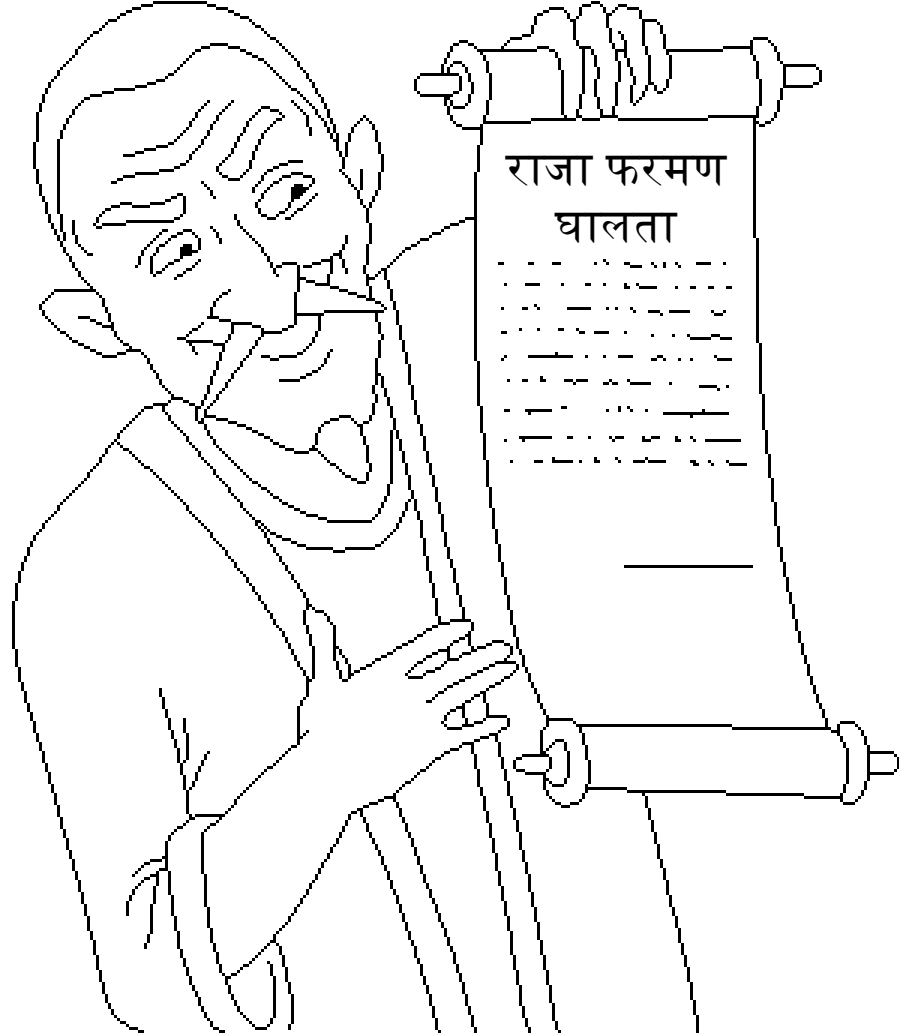 राजा फरमण
घालता